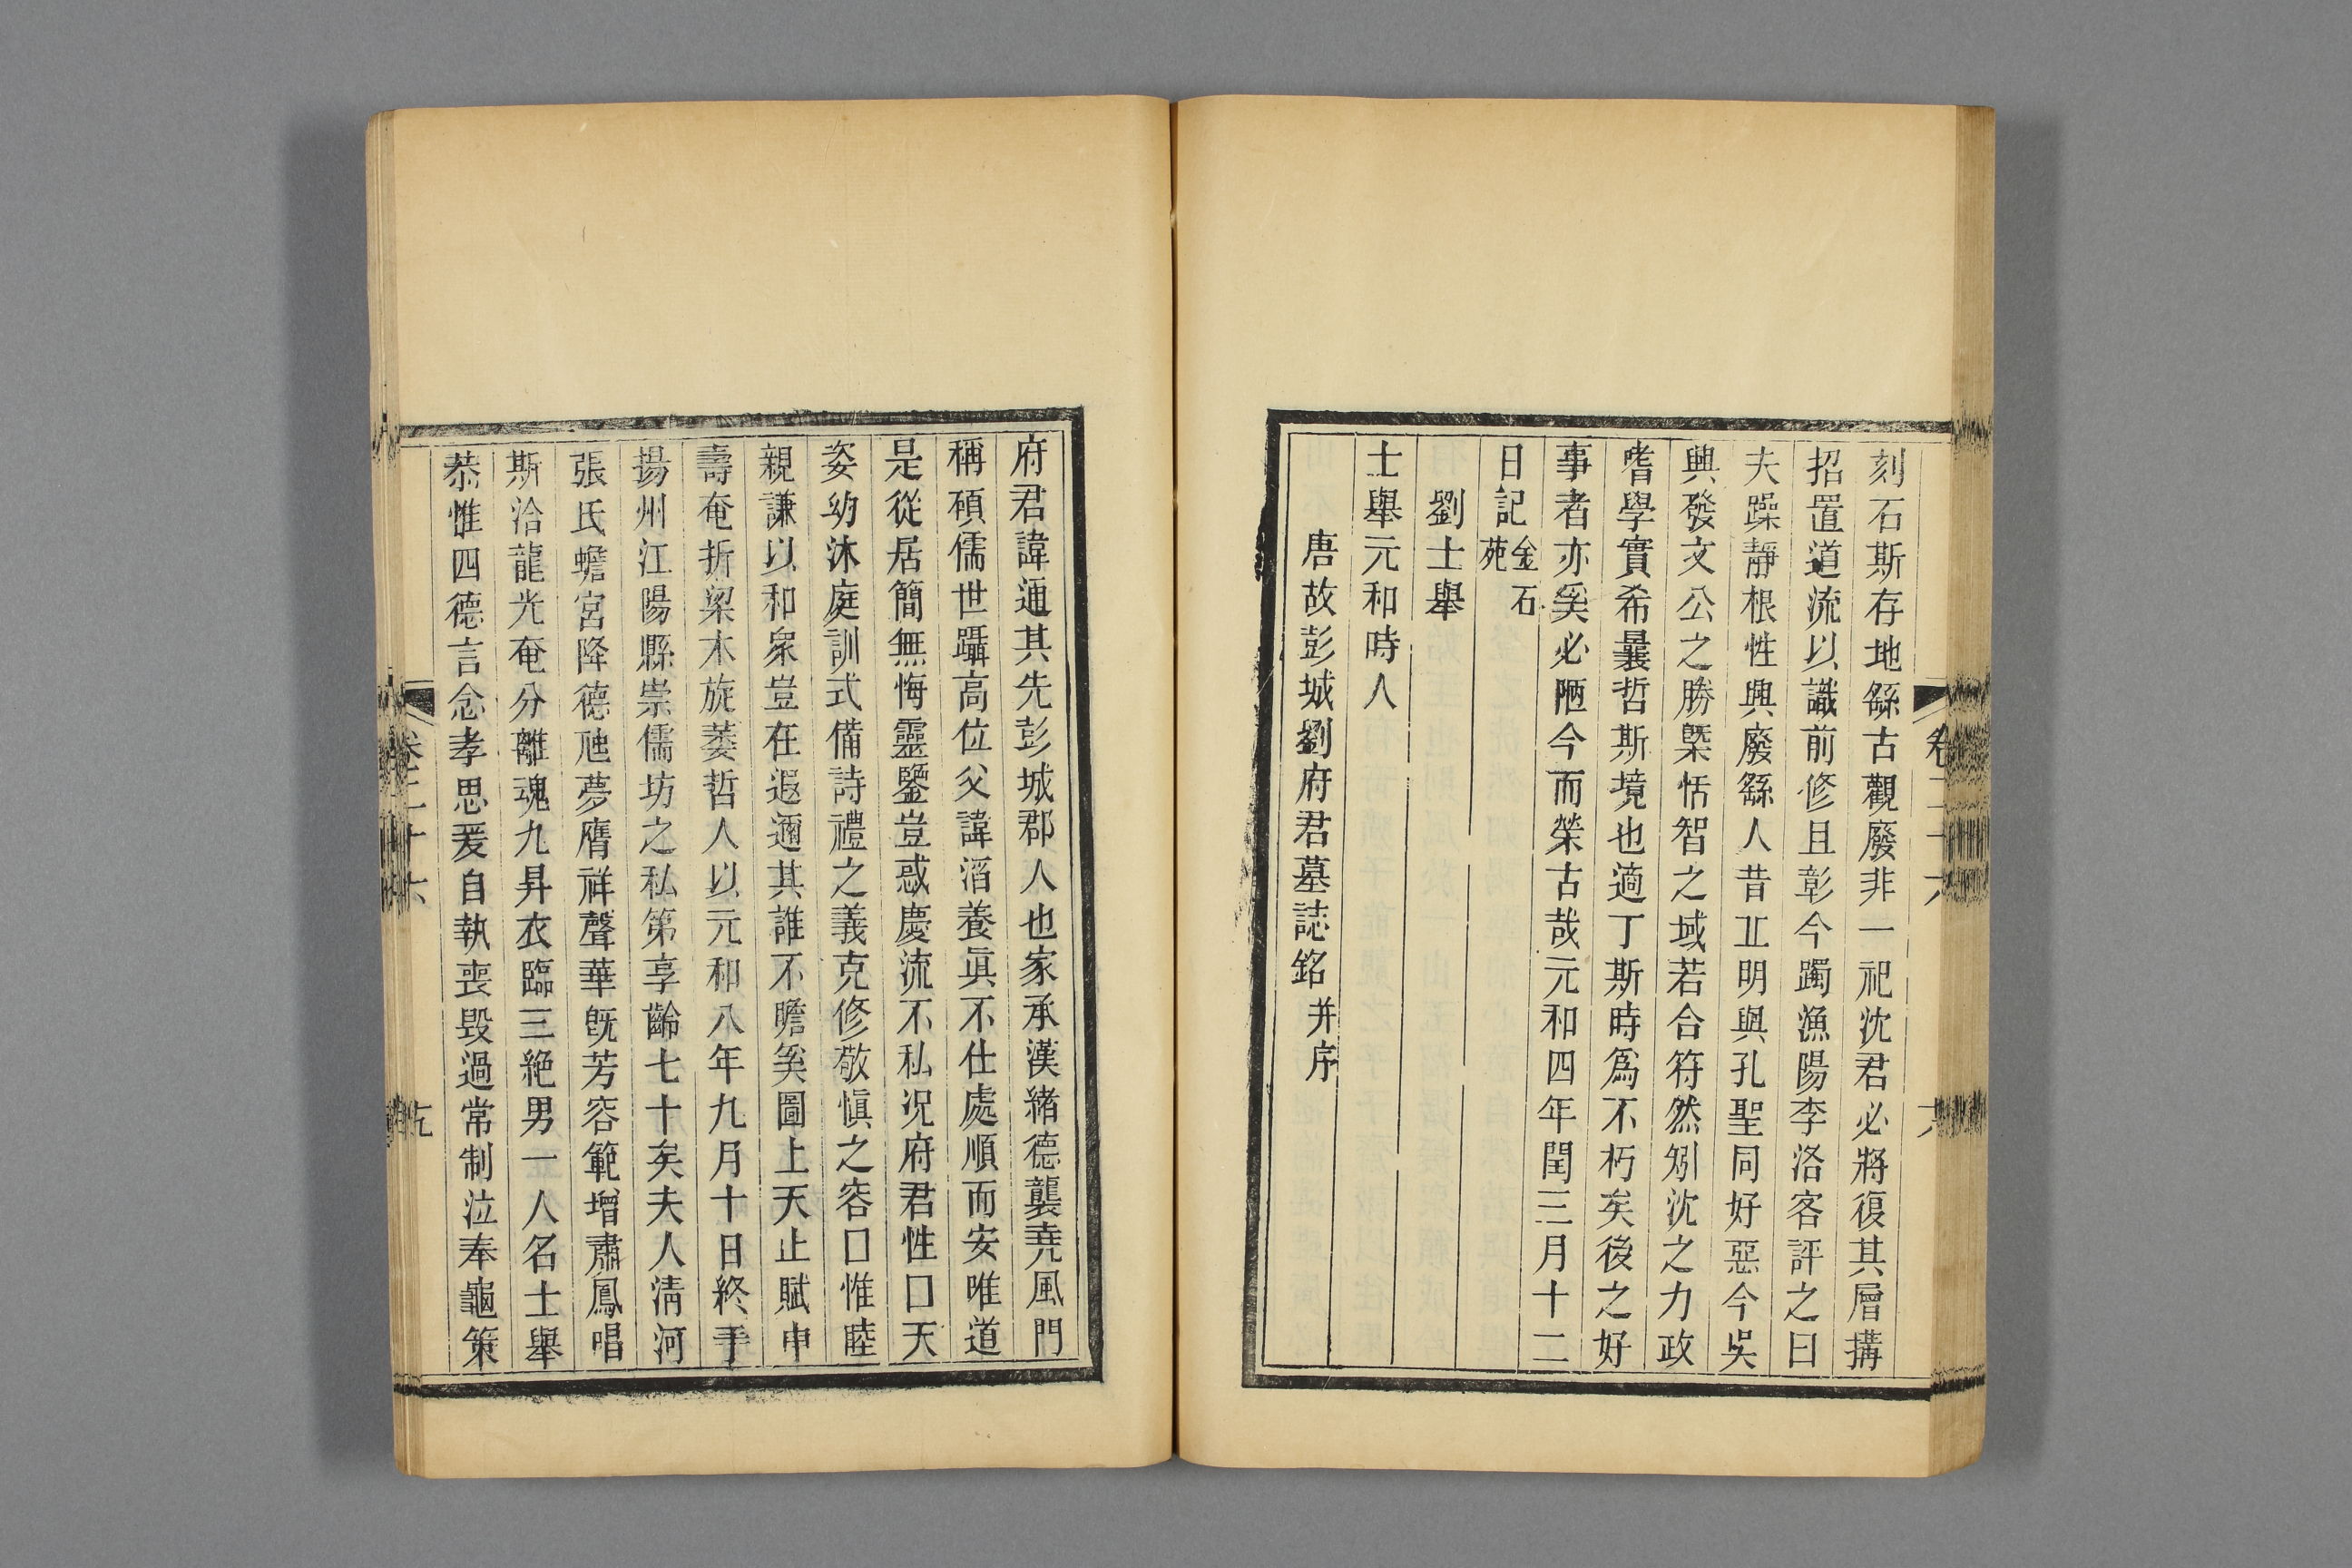 刻石斯存地繇古觀廢非一祀沈君必將復其層搆
招置道流以識前修且彰今躅漁陽李洛客評之曰
夫躁靜根性興廢繇人昔丘明與孔聖同好惡今吳
興發文公之勝槩恬智之域若合符然矧沈之力政
嗜學實希曩哲斯境也適丁斯時爲不朽矣後之好
事者亦奚必陋今而榮古哉元和四年閏三月十二
日記金石苑
劉士舉
士舉元和時人
唐故彭城劉府君墓誌銘并序
府君諱通其先彭城郡人也家承漢緒德襲堯風門
稱碩儒世躡高位父諱滔養眞不仕處順而安唯道
是從居簡無悔靈鑒豈惑慶流不私況府君性口天
姿幼沐庭訓式備詩禮之義克修敬愼之容口惟睦
親謙以和衆豈在遐邇其誰不瞻奚圖上天止賦中
壽奄折梁木旋萎哲人以元和八年九月十日終手
揚州江陽縣崇儒坊之私第享齡七十矣夫人淸河
張氏蟾宮降德虺夢膺祥聲華旣芳容範增肅鳳唱
斯洽龍光奄分離魂九昇衣臨三絶男一人名士舉
恭惟四德言念孝思爰自執喪毀過常制泣奉龜策